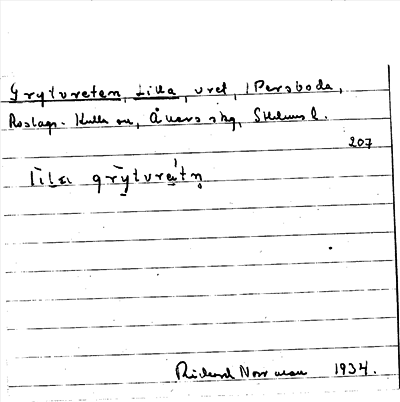 Grytvreten, Lilla, vret, i Persboda,
Roslags-Kulla sn, Åkers skg, Sthlms l.
207
lila grytvretn
Rickard Norrman 1934.